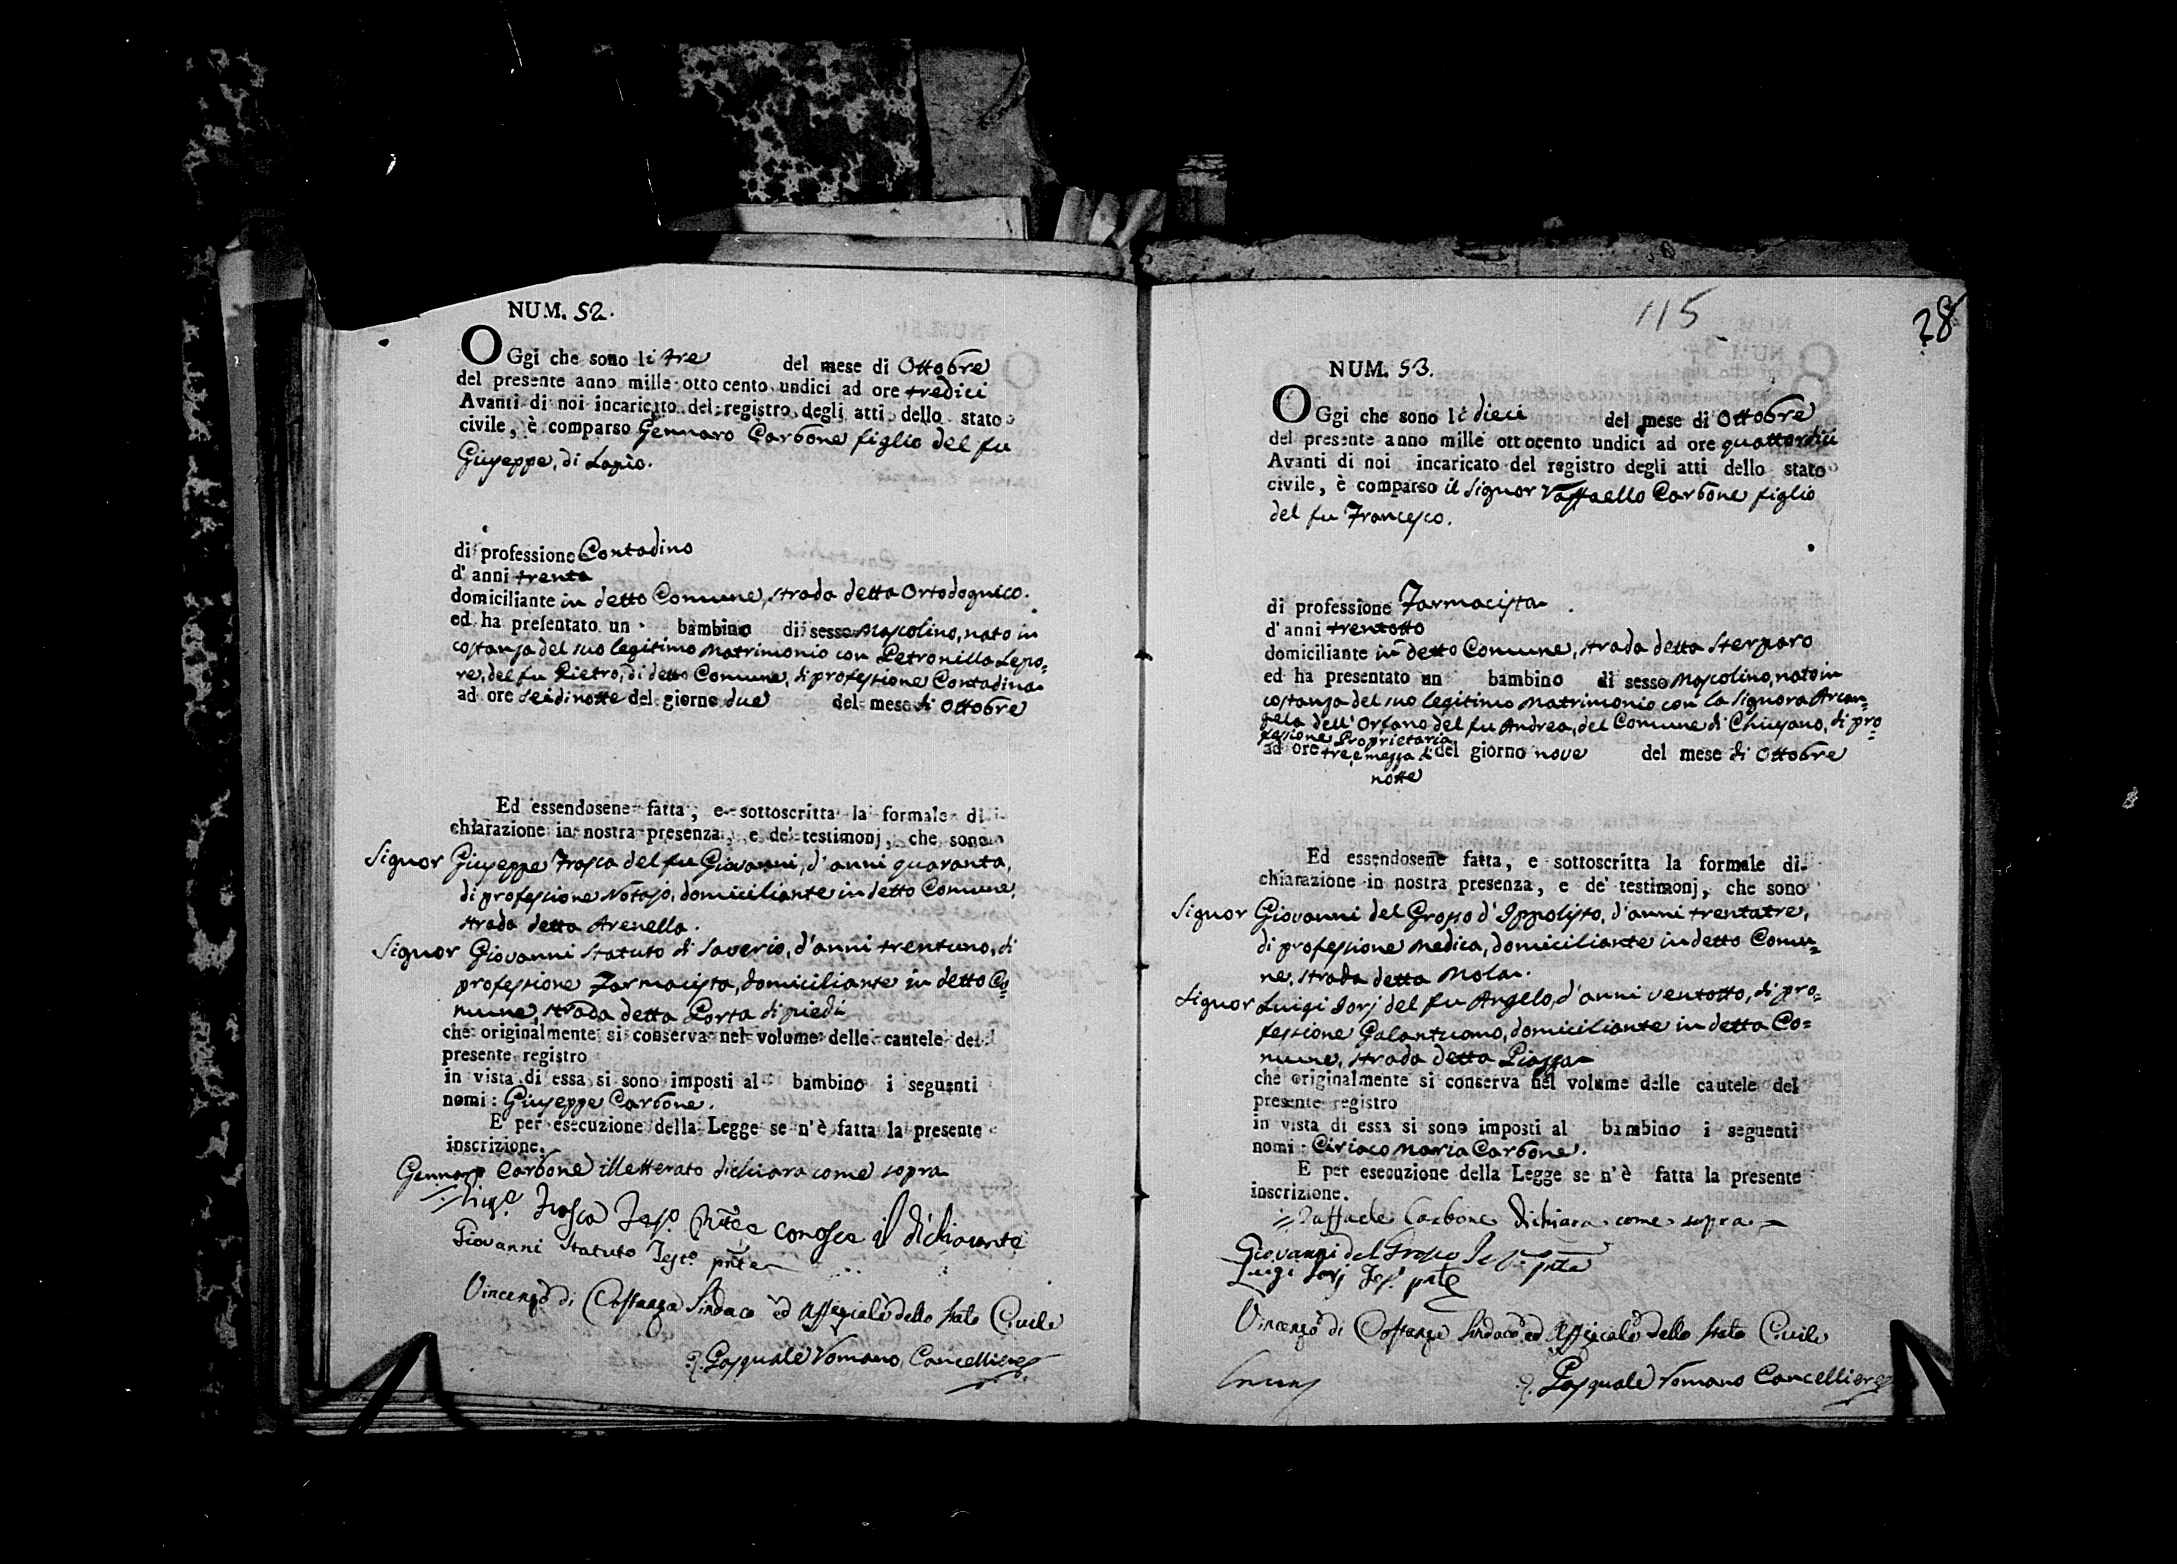 NUM. 52.
OGgi che sono li tre del mese di Ottobre
del presente anno mille otto cento undici ad ore tredici
Avanti di noi incaricato del registro degli atti dello stato
civile, è comparso Gennaro Carbone figlio del fu
Giuseppe, di Lapio.
di professione Contadino
d' anni trenta
domiciliante in detto Comune, strada detta Ortodognico.
ed ha presentato un bambino di sesso Mascolino, nato in
costanza del suo legitimo Matrimonio con Petronilla Lepo=
re, del fu Pietro, di detto Comune, di professione Contadina
ad ore sei di notte del giorno due del mese di Ottobre
Ed essendosene fatta, e sottoscritta la formale di
chiarazione in nostra presenza, e de' testimonj, che sono
Signor Giuseppe Frasca del fu Giovanni, d' anni quaranta,
di professione Notajo, domiciliante in detto Comune,
strada detta Arenella.
Signor Giovanni Statuto di Saverio, d'anni trentuno, di
professione Farmacista, domiciliante in detto Co=
mune, strada detta Porta di piedi
che originalmente si conserva nel volume delle cautele del
presente registro
in vista di essa si sono imposti al bambino i seguenti
nomi: Giuseppe Carbone.
E per esecuzione della Legge se n'è fatta la presente
inscrizione.
Gennaro Carbone illetterato dichiara come sopra
Frasca Tes.o pnte conosce il dichiarante
Giovanni Statuto Test.o pnte
Vincenzo di Costanza Sindaco ed Uffiziale dello Stato Civile
Pasquale Romano Cancelliere
115
28
NUM. 53.
OGgi che sono li dieci del mese di Ottobre
del presente anno mille ottocento undici ad ore quattordici
Avanti di noi incaricato del registro degli atti dello stato
civile, è comparso il Signor Raffaello Carbone figlio
del fu Francesco.
di professione Farmacista
d' anni trentotto
domiciliante in detto Comune, strada detta Sterparo
ed ha presentato un bambino di sesso Mascolino, nato in
costanza del suo legitimo Matrimonio con la Signora Arcan=
gela dell' Orfano del fu Andrea, del Comune di Chiusano, di pro=
fessione Proprietaria
ad ore tre, e mezza di del giorno nove del mese di Ottobre
notte
Ed essendosene fatta, e sottoscritta la formale di
chiarazione in nostra presenza, e de' testimonj, che sono
Signor Giovanni del Grosso d' Ippolisto, d'anni trentatre,
di professione Medica, domiciliante in detto Comu=
ne, strada detta Mola.
Signor Luigi Iorj del fu Angelo, d'anni ventotto, di pro=
fessione Galantuomo, domiciliante in detto Co=
mune, strada detta Piazza
che originalmente si conserva nel volume delle cautele del
presente registro
in vista di essa si sono imposti al bambino i seguenti
nomi: Ciriaco Maria Carbone.
E per esecuzione della Legge se n'è fatta la presente
inscrizione.
Raffaele Carbone dichiara come sopra
Giovanni del Grosso Tes.o pnte
Luigi Iorj Tes.o pnte
Vincenzo di Costanza Sindaco ed Uffiziale dello Stato Civile
Pasquale Romano Cancelliere